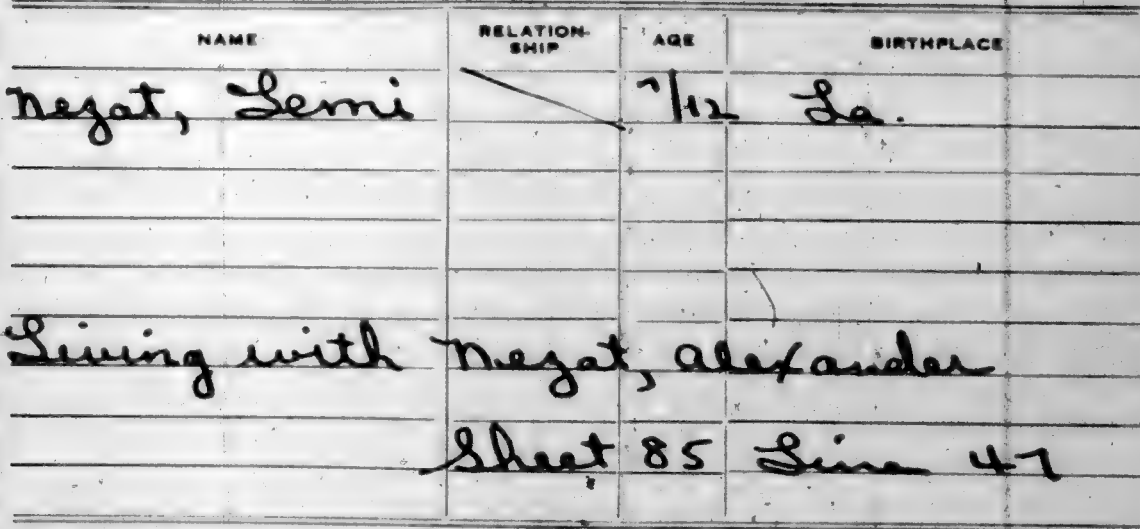 NAME RELATION-SHIP AGE BIRTHPLACE
Nezat, Lemi 7/12 La.
Living with Nezat, Alexander
Sheet 85 Line 47